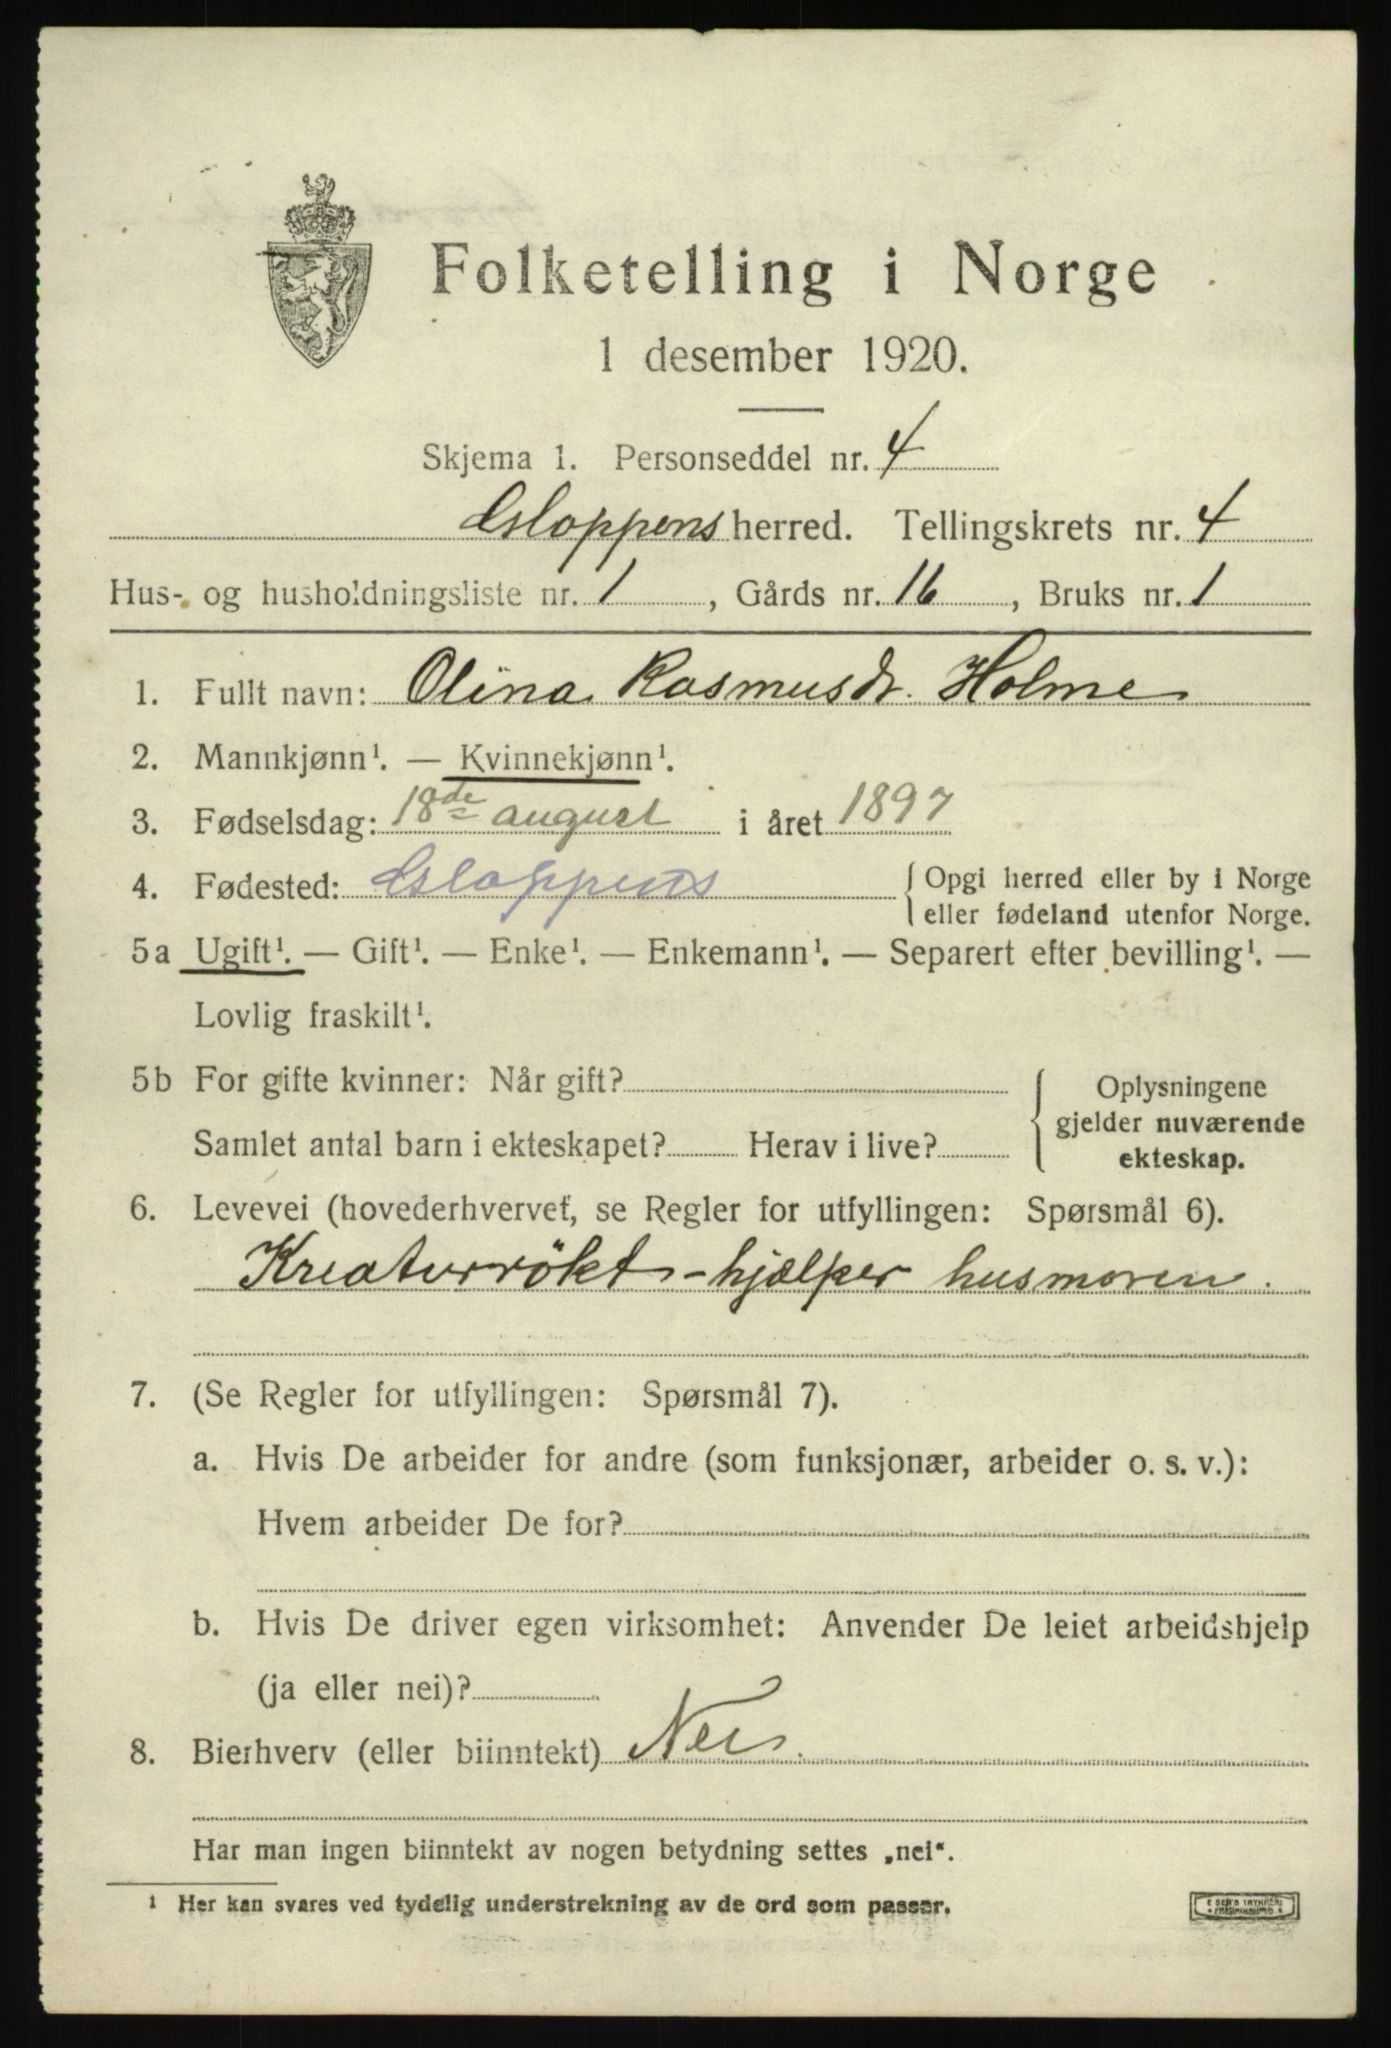 Folketelling i Norge
1 desember 1920.
Skjema 1. Personseddel nr. 4
Gloppens herred. Tellingskrets nr. 4
Hus- og husholdningsliste nr. 1, Gårds nr. 16, Bruks nr. 1
1. Fullt navn: Olina Rasmusdr. Holme
2. Mannkjønn¹. — Kvinnekjønn¹.
3. Fødselsdag: 18de august i året 1897
4. Fødested: Gloppens { Opgi herred eller by i Norge
eller fødeland utenfor Norge.
5a Ugift¹. — Gift¹. — Enke¹. — Enkemann¹. — Separert efter bevilling¹. —
Lovlig fraskilt¹.
5b For gifte kvinner: Når gift? { Oplysningene
gjelder nuværende
Samlet antal barn i ekteskapet? Herav i live?
ekteskap.
6. Levevei (hovederhvervet, se Regler for utfyllingen: Spørsmål 6).
Kreaturrökt - hjælper husmoren.
7. (Se Regler for utfyllingen: Spørsmål 7).
a. Hvis De arbeider for andre (som funksjonær, arbeider o. s. v.):
Hvem arbeider De for?
b. Hvis De driver egen virksomhet: Anvender De leiet arbeidshjelp
(ja eller nei)?
8. Bierhverv (eller biinntekt) Nei.
Har man ingen biinntekt av nogen betydning settes „nei“.
¹ Her kan svares ved tydelig understrekning av de ord som passer.